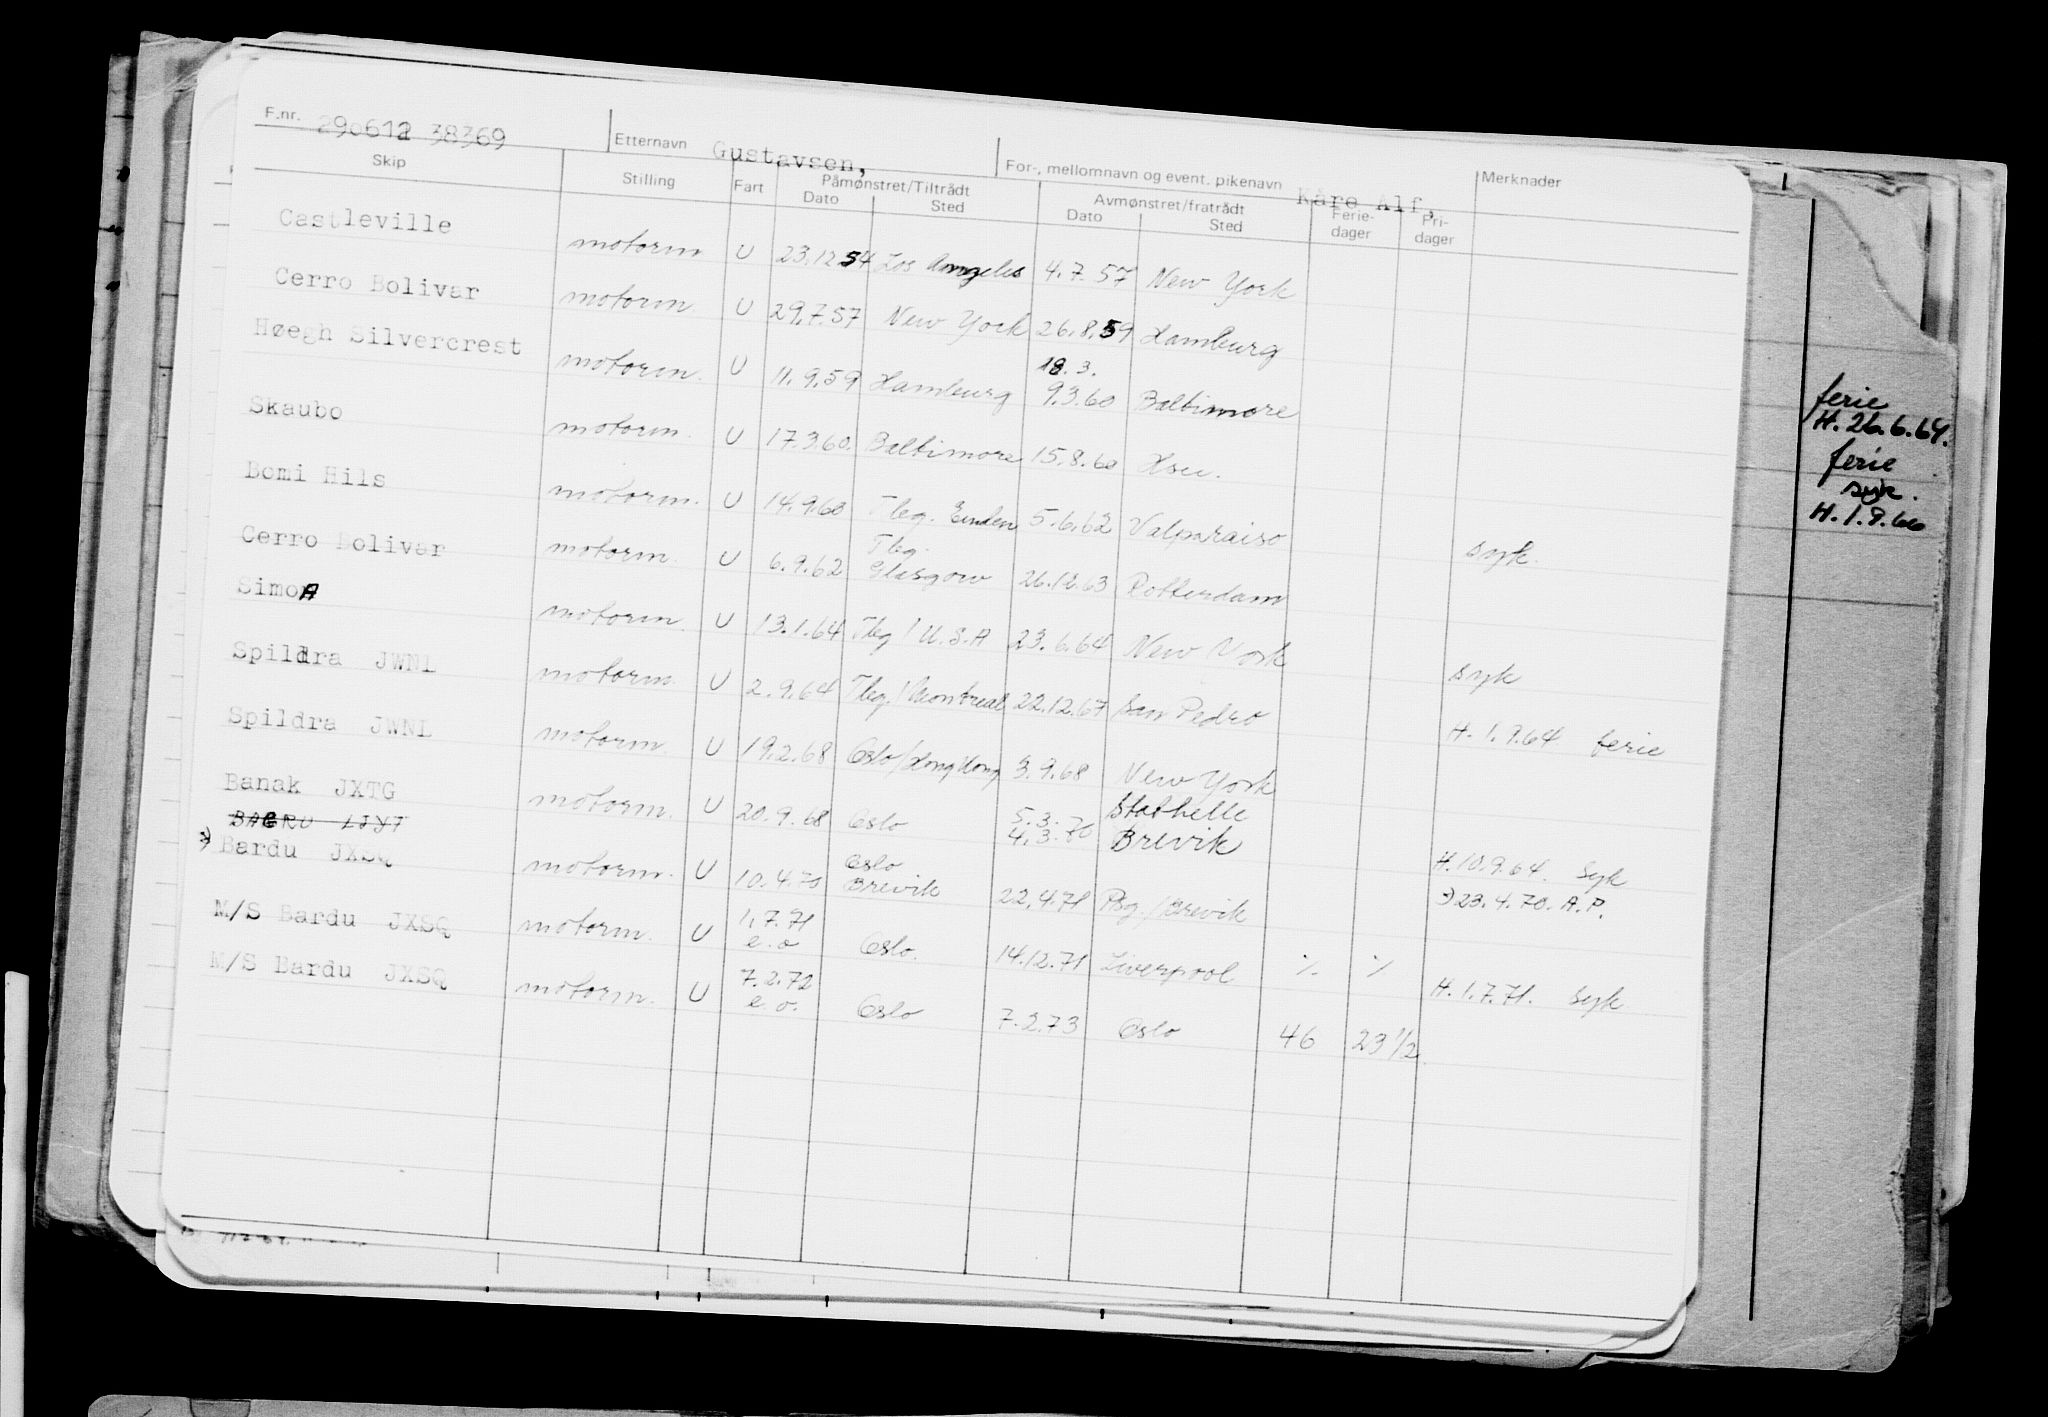 F.nr. 290612 38369 Etternavn Gustavsen, For-, mellomnavn og event. pikenavn Kåre Alf, Merknader
Skip Stilling Fart Påmønstret/Tiltrådt Dato Sted Avmønstret/fratrådt Dato Sted Ferie-dager Fri-dager
Castleville motorm U 23.12 54 Los Angeles 4.7.57 New York
Cerro Bolivar motorm. U 29.7.57 New York 26.8.59 Hamburg
18.3.
Høegh Silvercrest motorm. U 11.9.59 Hamburg 9.3.60 Baltimore
Skaubo motorm. U 17.3.60. Baltimore 15.8.60
Bomi Hils motorm. U 14.9.60 Tleg. Emden 5.6.62 Valparaiso syk.
Cerro Bolivar motorm. U 6.9.62 Tleg. Glasgow 26.12.63 Rotterdam
SimonA motorm. U 13.1.64 Tleg / U.S.A 23.6.64 New York syk
Spildra JWNL motorm. U 2.9.64 Tleg./Montreal 22.12.67 San Pedro H. 1.9.64 ferie
Spildra JWNL motorm. U 19.2.68 Oslo/Hong Kong 3.9.68 New York
Banak JXTG motorm. U 20.9.68 Oslo 5.3. Stathelle
4.3.70 Brevik H.10.9.64. Syk
Bardu JXSQ motorm. U 10.4.70 Oslo Brevik 22.4.71 Psg./Brevik 23.4.70. A.P.
M/S Bardu JXSQ motorm. U 1.7.71 e.o Oslo. 14.12.71 Liverpool % % H.1.7.71. Syk
M/S Bardu JXSQ motorm. U 7.2.72 e.o. Oslo 7.2.73 Oslo 46 23 1/2
ferie
H. 26.6.64.
ferie
syk.
H.1.9.66